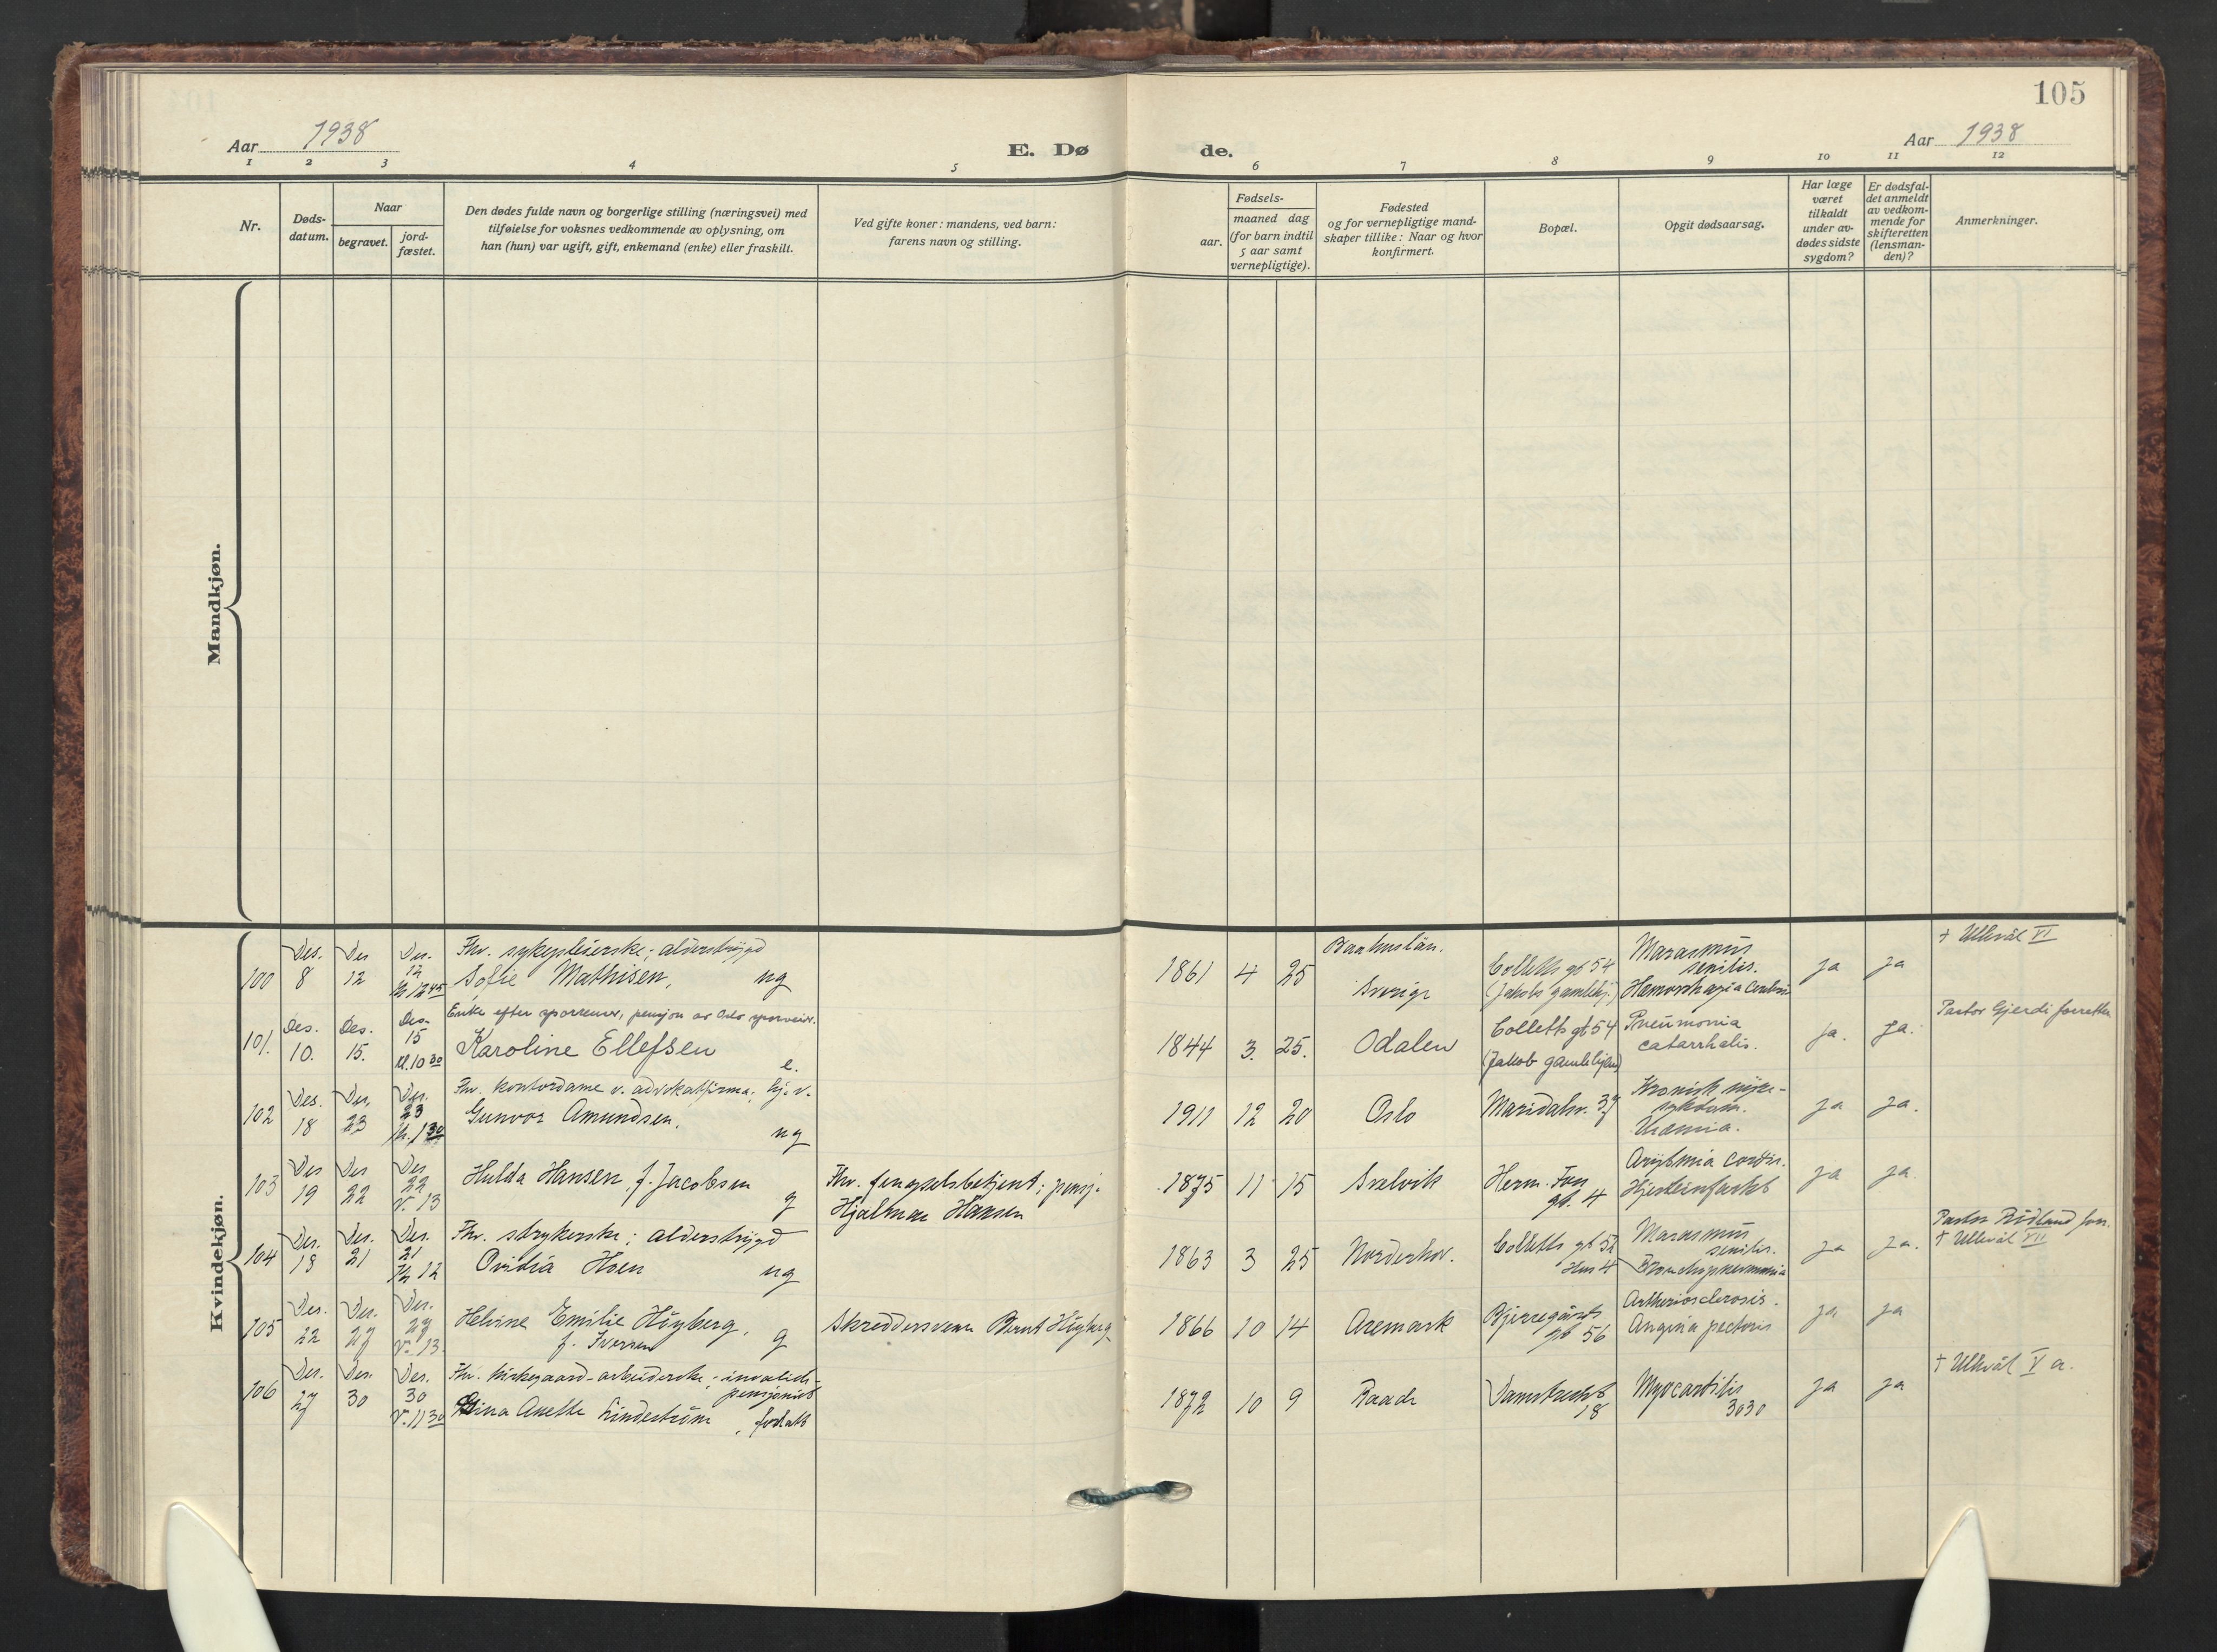 105
Aar 1938
E. Dø
de.
Aar 1938
1 2 3 4 5 6 7 8 9 10 11 12
Nr.
Døds-
datum.
Naar
begravet.
jord-
fæstet.
Den dødes fulde navn og borgerlige stilling (næringsvei) med
tilføielse for voksnes vedkommende av oplysning, om
han (hun) var ugift, gift, enkemand (enke) eller fraskilt.
Ved gifte koner: mandens, ved barn:
farens navn og stilling.
Fødsels-
aar.
maaned dag
(for barn indtil
5 aar samt
vernepligtige).
Fødested
og for vernepligtige mand-
skaper tillike: Naar og hvor
konfirmert.
Bopæl.
Opgit dødsaarsag.
Har læge
været
tilkaldt
under av-
dødes sidste
sygdom?
Er dødsfal-
det anmeldt
av vedkom-
mende for
skifteretten
(lensman-
den)?
Anmerkninger.
Mandkjøn.
Kvindekjøn.
100
Des. 8
Des 12
Des. 12 kl. 12 45
Fhv. sykepleierske; alderstrygd
Sofie Mathisen, ug
1861 4 25
Sverige
Colletts gt 54
(Jakobs gamlehj.)
Marasmus
senilis.
Hæmorrhagia cerebri
ja
ja
+ Ullevål VI
101.
Des. 10.
Des. 15.
Des. 15 kl. 10 30
Enke efter sporveisv., pensjon av Oslo sporveier.
Karoline Ellefsen e.
1844 3. 25.
Odalen
Colletts gt 54
(Jakob gamlehjem)
Pneumonia
catarrhalis.
ja.
ja.
Pastor Gjerdi forrettet
102
Des. 18
Des. 23
Des. 23 kl. 1 30
Fhv. kontordame v. advokatfirma; hj. v.
Gunvor Amundsen, ug
1911 12 20
Oslo
Maridalsv. 37
Kronisk nyre-
sykdom.
Uræmia.
ja
ja.
103
Des 19
Des 22
Des 22 V. 13
Hulda Hansen, f. Jacobsen g
Fhv. fengselsbetjent; pensj.
Hjalmar Hansen
1875 11 15
Svelvik
Herm. Foss
gt. 4
Arytmia cordis.
Hjerteinfarkt
ja
ja
104
Des. 18
Des. 21
Des. 21 kl 12
Fhv. strykerske; alderstrygd
Ovidia Hoen ug
1863 3 25
Norderhov.
Colletts gt 52
Hus 4
Marasmus
senilis.
Bronchopneumonia
ja
ja.
Pastor Rödland forr.
+ Ullevål VII
105
Des. 22
Des. 27
Des. 27 V. 13.
Helvine Emilie Høyberg, g
f. Iversen
Skreddersvenn Bernt Høyberg
1866 10 14
Aremark
Bjerregårds
gt 56
Artheriosclerosis.
Angina pectoris
ja
ja
106
Des. 27
Des. 30
Des. 30 V. 11 30
Fhv. kirkegaard-arbeiderske; invalide-
pensjonist
Anette Lindestrøm, forlatt
1872 10 9
Raade
Damstredet
18
Myocarditis
3030
ja
ja
+ Ullevål V a.